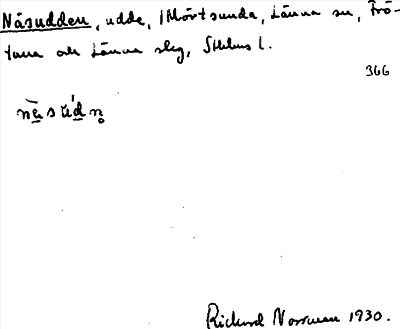 Näsudden, udde, i Mörtsunda, Länna sn, Frö-
tuna och Länna slg, Sthlms l.
366
Rickard Norrman 1930.